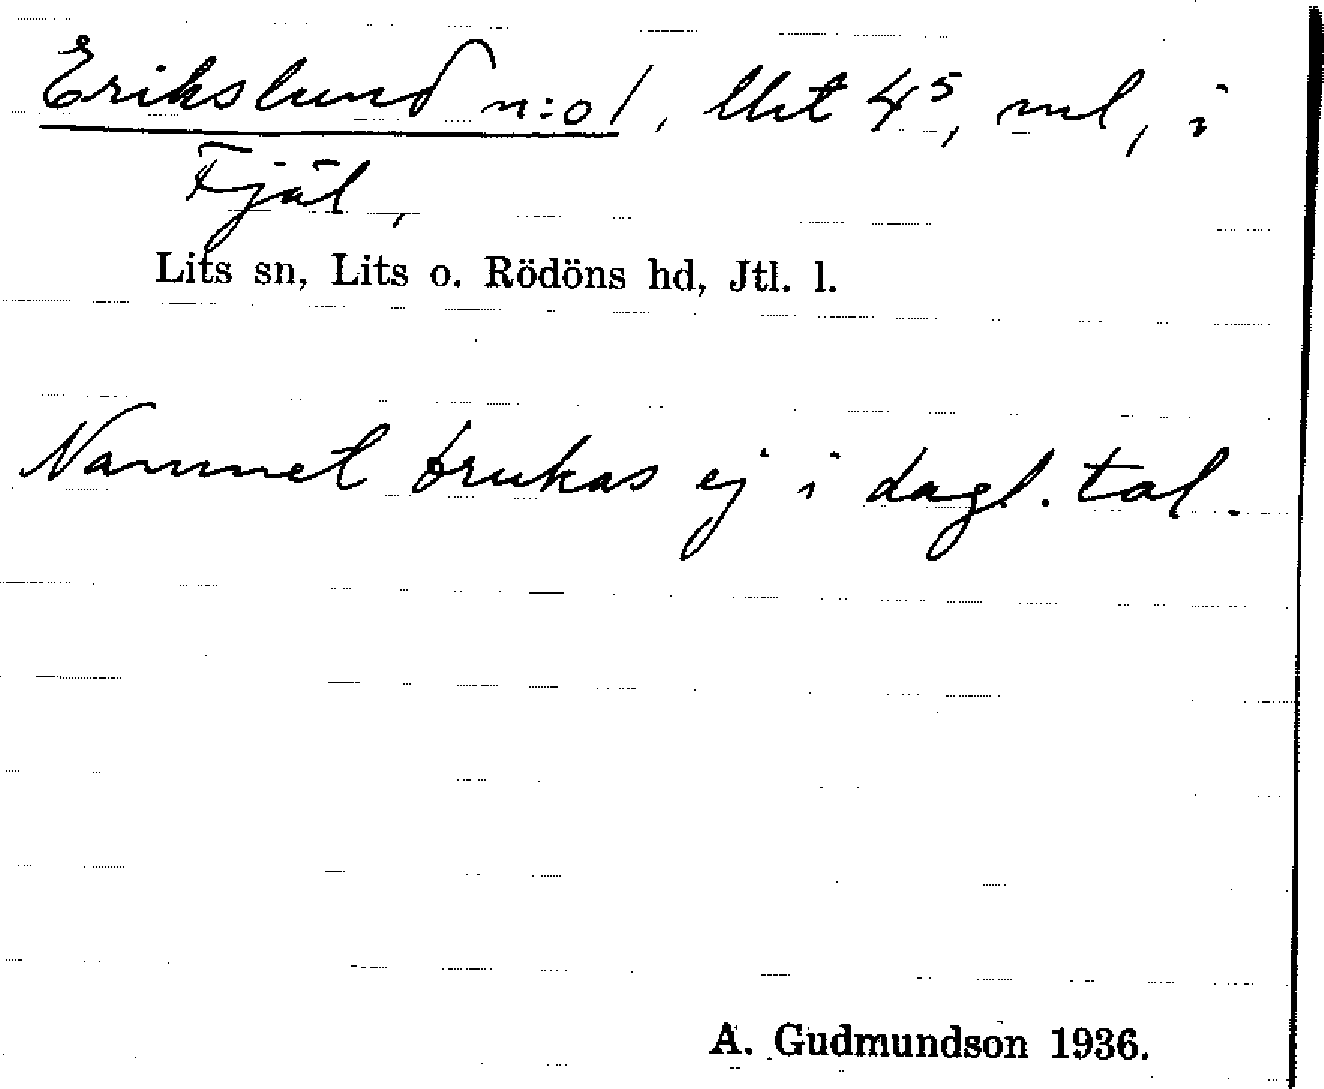 Erikslund n:o 1, Utr 4⁵, ml, i
Fjäl,
Lits sn, Lits o. Rödöns hd, Jtl. l.
Namnet brukas ej i dagl. tal.
A. Gudmundson 1936.